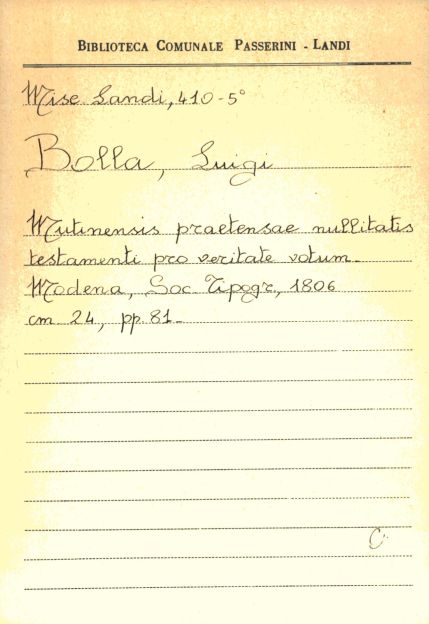 BIBLIOTECA COMUNALE PASSERINI - LANDI
Misc. Landi, 410-5°
Bolla, Luigi
Mutinensis praetensae nullitatis
testamenti pro veritate votum.
Modena, Soc. Tipogr., 1806
cm 24, pp. 81.
C.